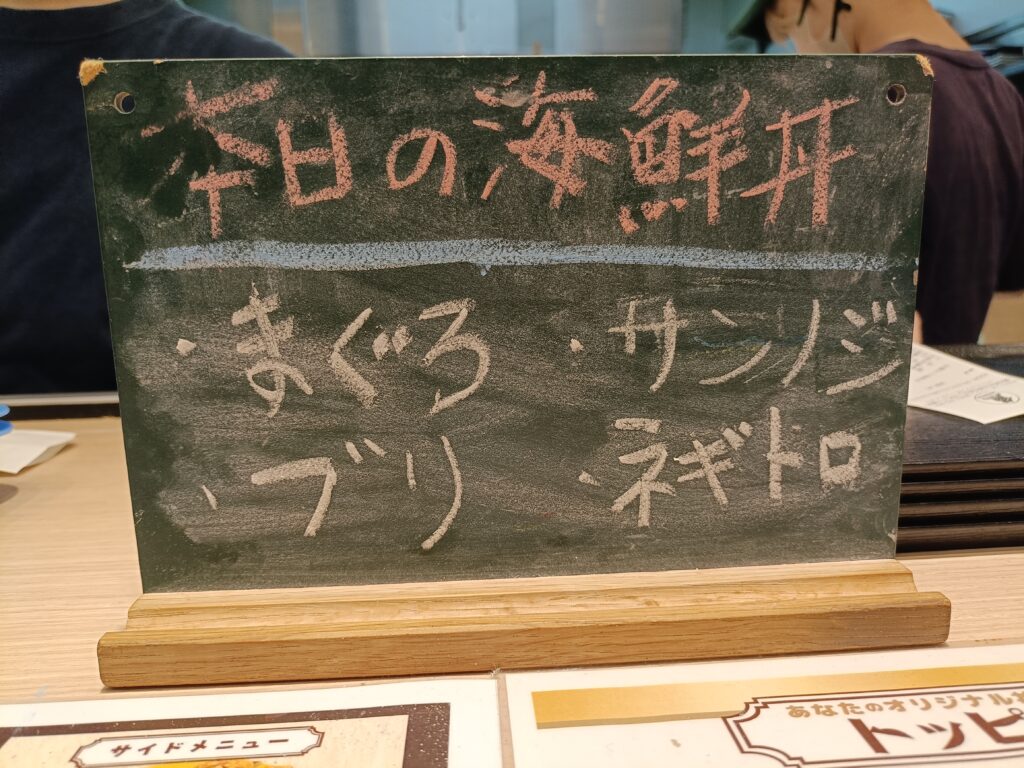 今日の海鮮丼
・まぐろ ・サンノジ
・ブリ ・ネギトロ
サイドメニュー
あなたのオリジナル
トッピ